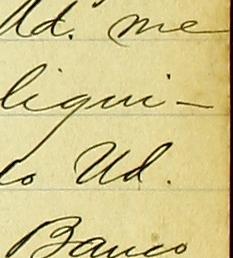 Ud. me
liqui-
do Ud.
Banco